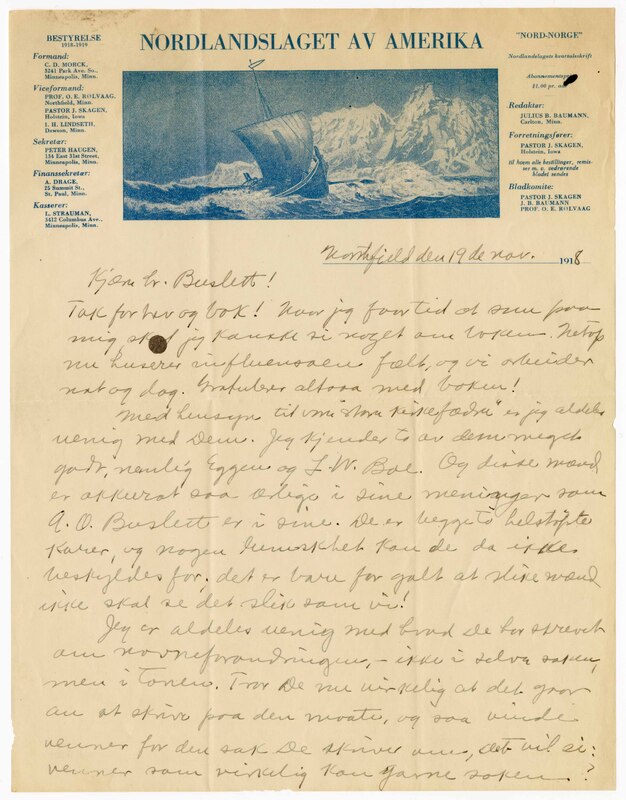 BESTYRELSE
1918-1919
Formand:
C. D. MORCK,
3241 Park Ave. So.,
Minneapolis, Minn.
Viceformand:
PROF. O. E. ROLVAAG,
Northfield, Minn.
PASTOR J. SKAGEN,
Holstein, Iowa
I. H. LINDSETH,
Dawson, Minn.
Sekretær:
PETER HAUGEN,
134 East 31st Street,
Minneapolis, Minn.
Finanssekretær:
A. DRAGE,
25 Summit St.,
St. Paul, Minn.
Kasserer:
L. STRAUMAN,
3412 Columbus Ave.,
Minneapolis, Minn.
NORDLANDSLAGET AV AMERIKA
"NORD-NORGE"
Nordlandslagets kvartalsskrift
$1.00 pr.
Redaktør:
JULIUS B. BAUMANN,
Carlton, Minn.
Forretningsfører:
PASTOR J. SKAGEN,
Holstein, Iowa
til hvem alle bestillinger, remis-
ser m. v. vedrørende
bladet sendes
Bladkomite:
PASTOR J. SKAGEN
J. B. BAUMANN
PROF. O. E. ROLVAAG
Northfield den 19de nov. 1918
Kjære hr. Buslett!
Tak for brev og bok! Naar jeg faar tid at som paa
mig skal jeg kanske si noget om boken. Netop
nu huserer influensaen fælt, og vi arbeider
nat og dag. Gratulerer altsaa med boken!
Med hensyn til "vore store kirkefædre" er jeg aldeles
uenig med Dem. Jeg kjender to av dem meget
godt, nemlig Eggen og L. W. Boe. Og disse mænd
er akkurat saa ærlige i sine meninger som
A. O. Buslett er i sine. De er begge to helstøpte
karer, og nogen lumskhet kan de da ikke
beskyldes for, det er bare for galt at slike mænd
ikke skal se det slik som vi!
Jeg er aldeles uenig med hvad De har skrevet
om navneforandringen, – ikke i selve saken,
men i tonen. Tror De nu virkelig at det gaar
an at skrive paa den maate, og saa vinde
venner for den sak De skriver om, det vil si:
venner som virkelig kan gavne saken?